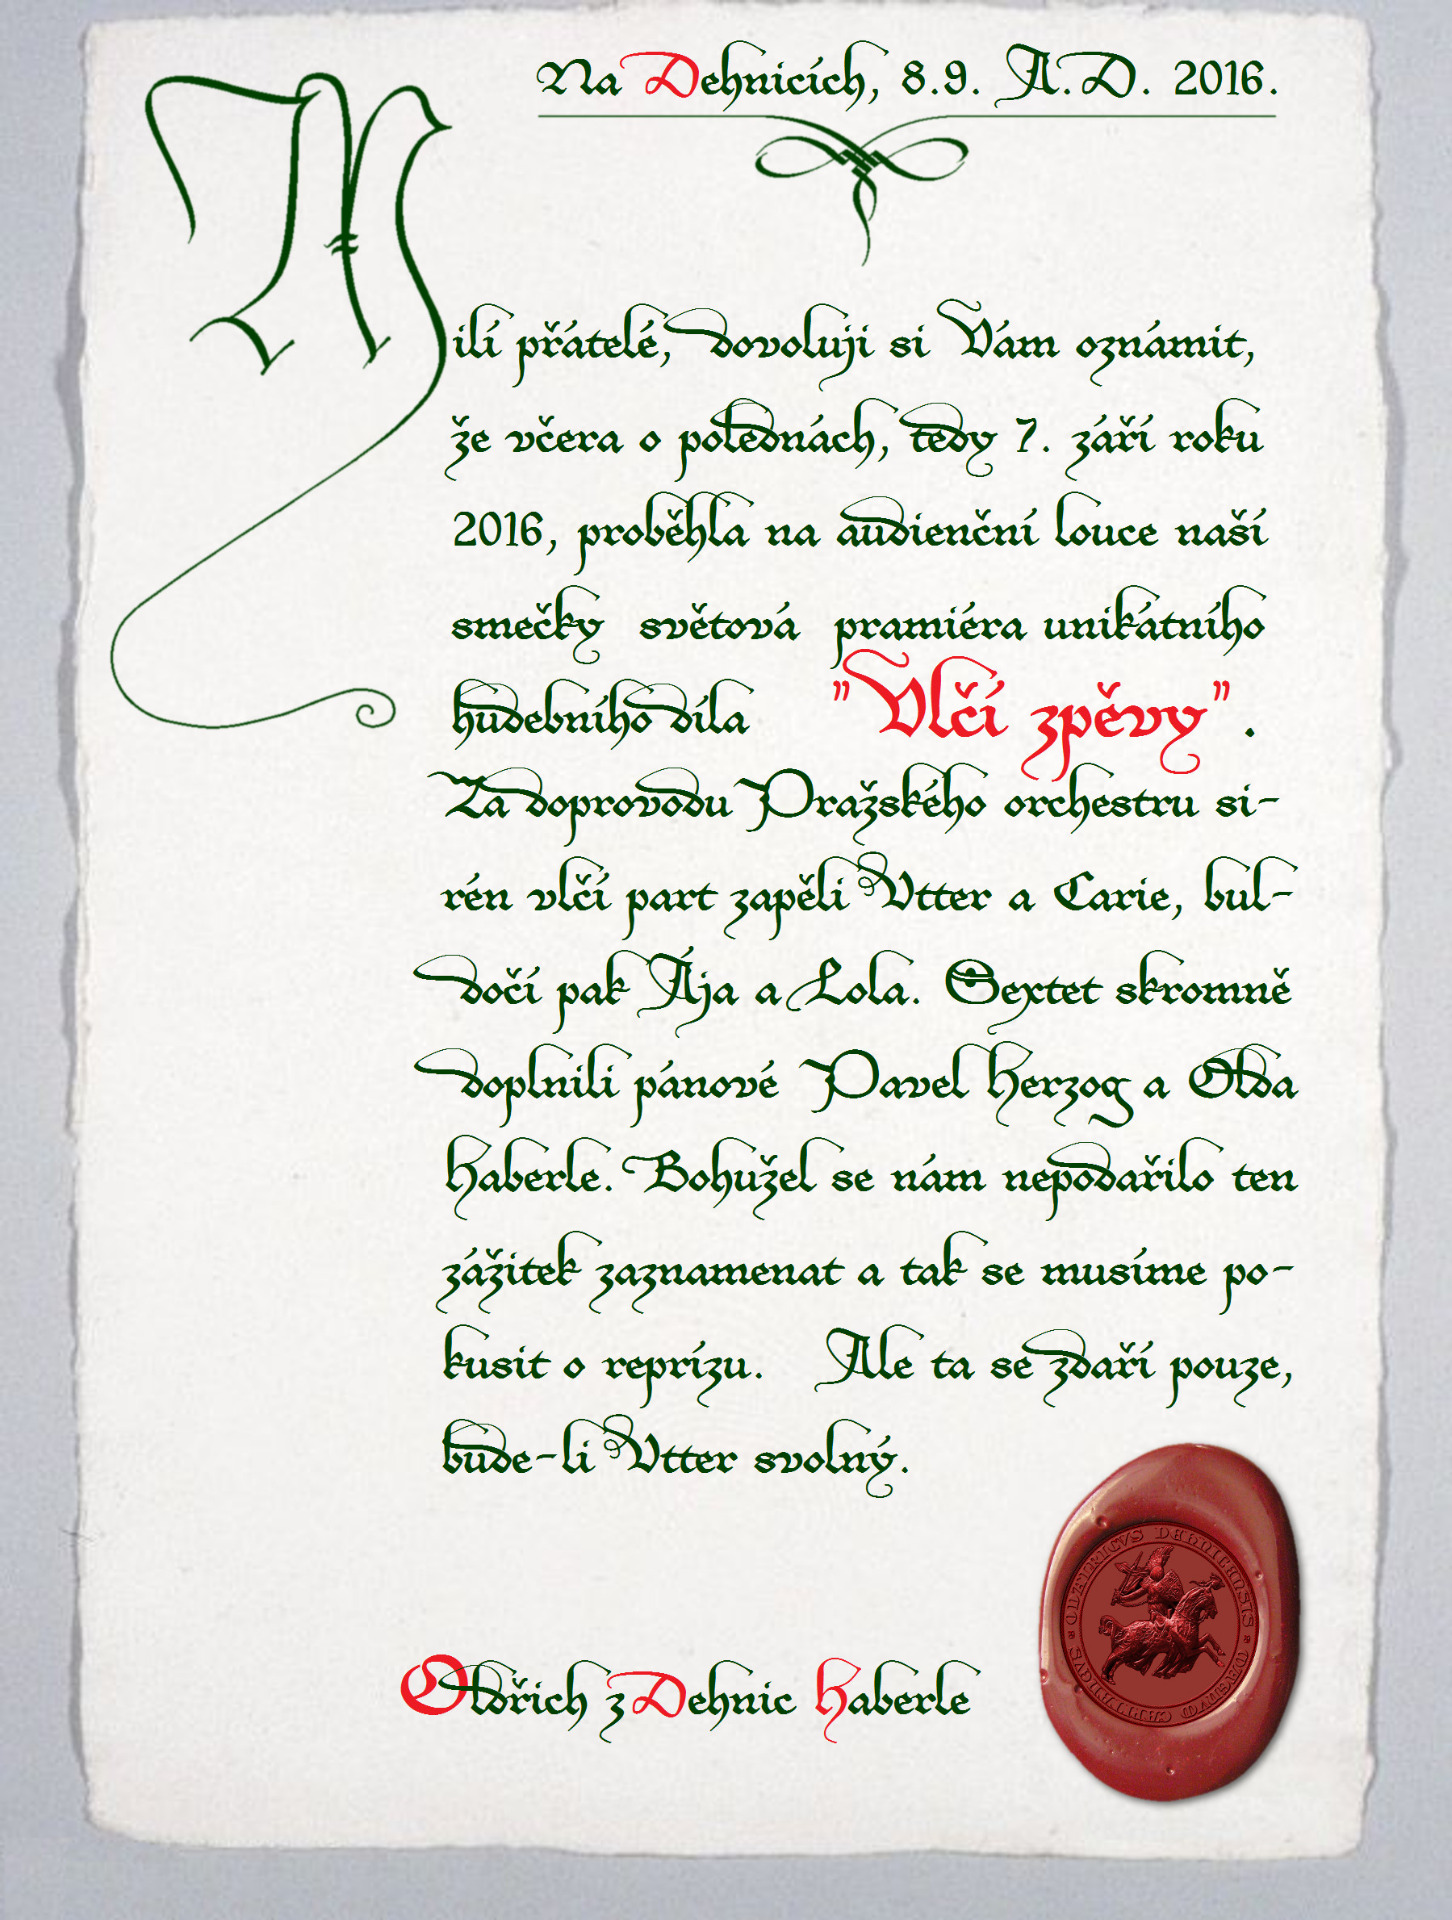 Na Dehnicích, 8.9. A.D. 2016.
Milí přátelé, dovoluji si Vám oznámit,
že včera o polednách, tedy 7. září roku
2016, proběhla na audienční louce naší
smečky světová pramiéra unikátního
hudebního díla "Vlčí zpěvy".
Za doprovodu Pražského orchestru si-
rén vlčí part zapěli Utter a Carie, bul-
dočí pak Ája a Lola. Sextet skromně
doplnili pánové Pavel Herzog a Olda
Haberle. Bohužel se nám nepodařilo ten
zážitek zaznamenat a tak se musíme po-
kusit o reprízu. Ale ta se zdaří pouze,
bude-li Utter svolný.
Oldřich z Dehnic Haberle